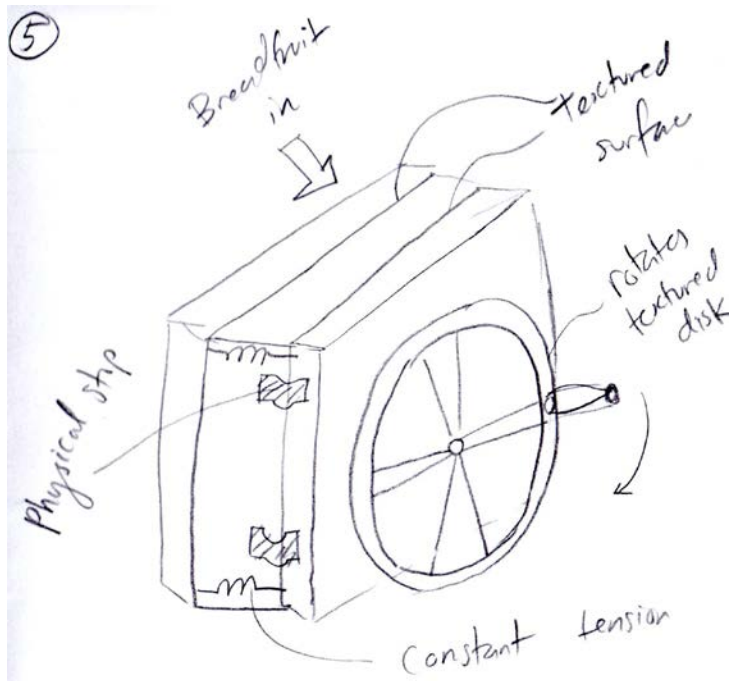 5
Breadfruit
in
textured
surface
rotates
textured
disk
physical stop
Constant tension